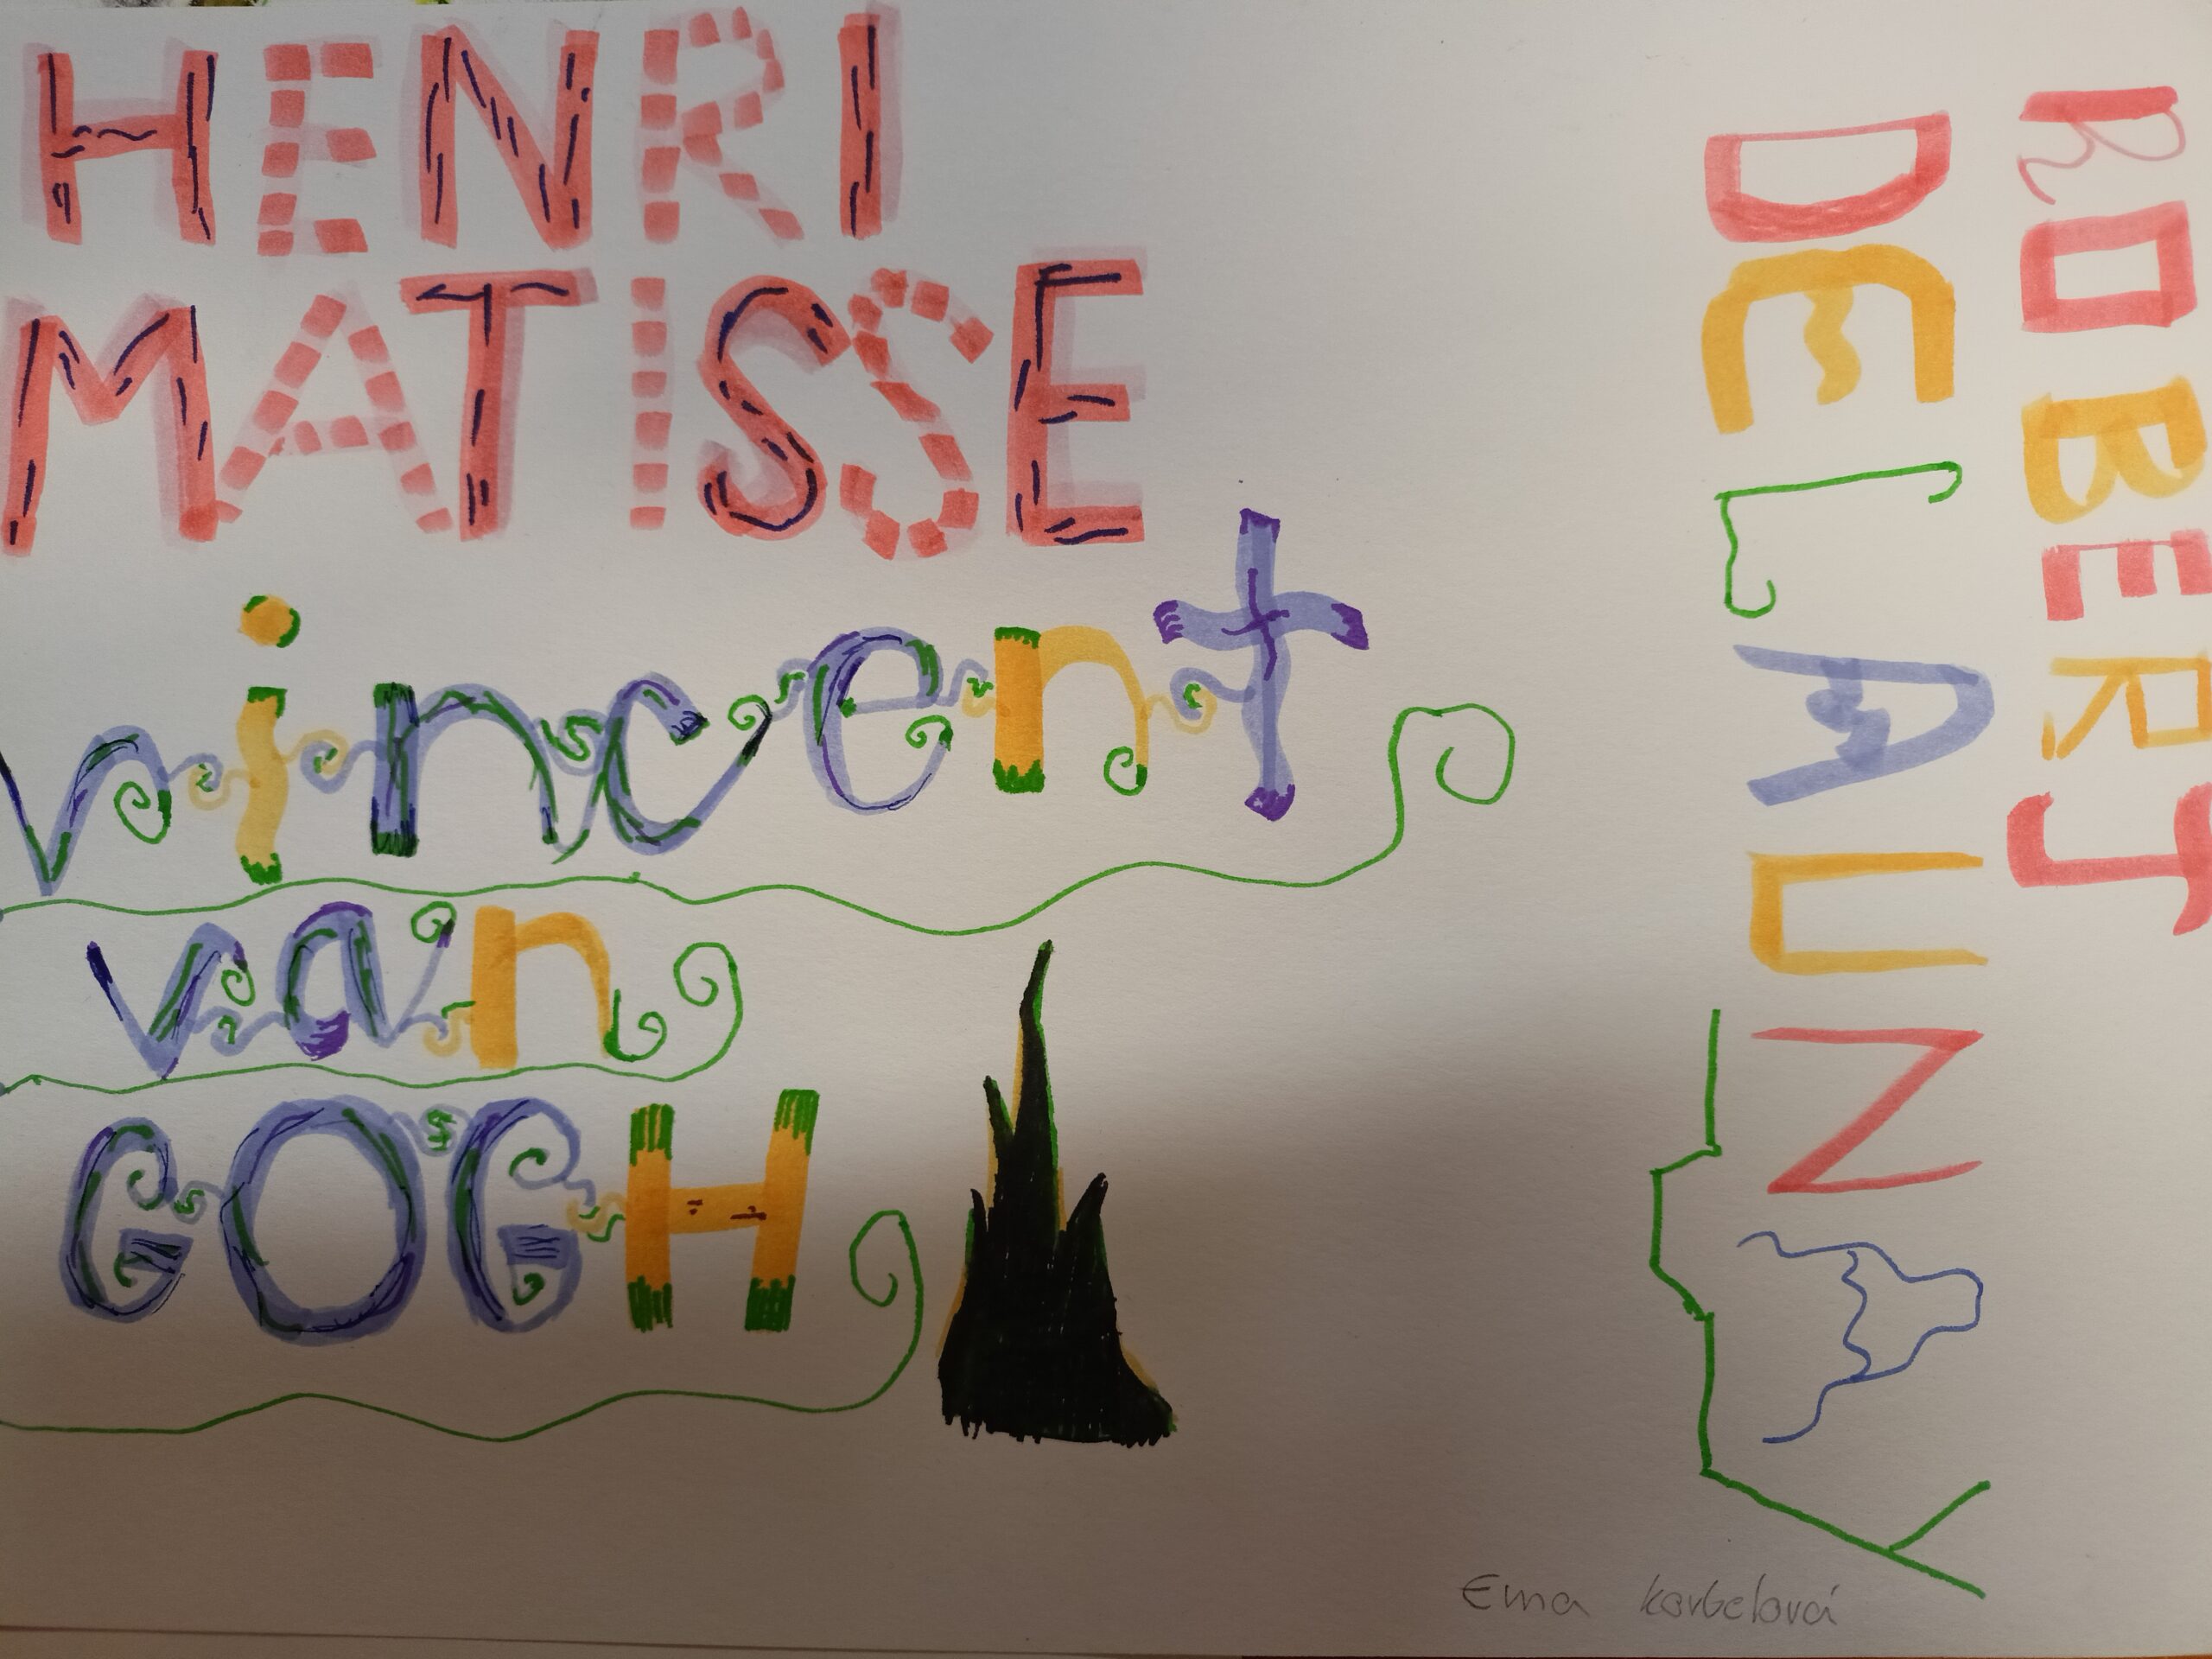 HENRI
MATISSE
vincent
van
GOGH
ROBERT
DELAUNAY
Ema Korbelová